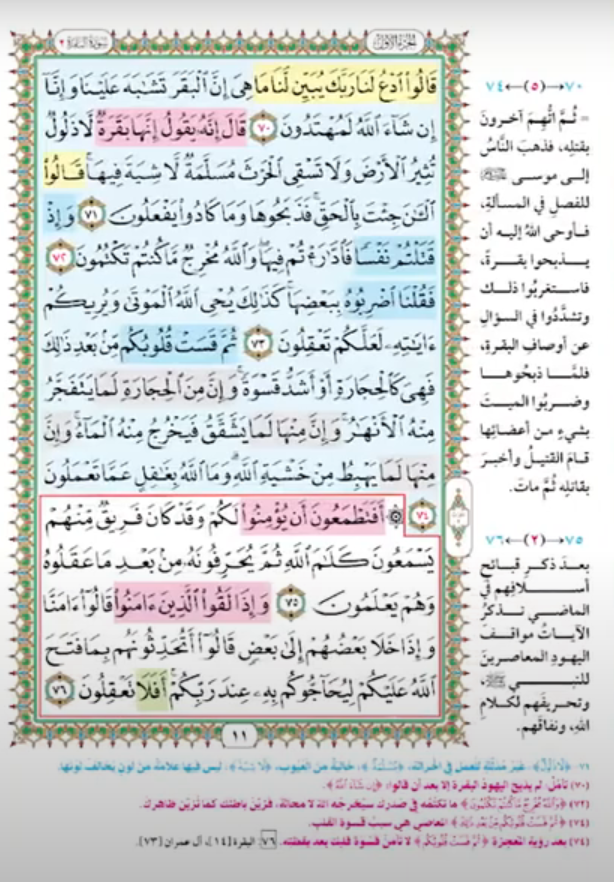 الجزء الأول
سورة البقرة ٢
قَالُوا۟ ٱدْعُ لَنَا رَبَّكَ يُبَيِّن لَّنَا مَا هِىَ إِنَّ ٱلْبَقَرَ تَشَٰبَهَ عَلَيْنَا وَإِنَّآ
إِن شَآءَ ٱللَّهُ لَمُهْتَدُونَ ٧٠ قَالَ إِنَّهُۥ يَقُولُ إِنَّهَا بَقَرَةٌ لَّا ذَلُولٌ
تُثِيرُ ٱلْأَرْضَ وَلَا تَسْقِى ٱلْحَرْثَ مُسَلَّمَةٌ لَّا شِيَةَ فِيهَا ۚ قَالُوا۟
ٱلْـَٰٔنَ جِئْتَ بِٱلْحَقِّ ۚ فَذَبَحُوهَا وَمَا كَادُوا۟ يَفْعَلُونَ ٧١ وَإِذْ
قَتَلْتُمْ نَفْسًا فَٱدَّٰرَْٰٔتُمْ فِيهَا ۖ وَٱللَّهُ مُخْرِجٌ مَّا كُنتُمْ تَكْتُمُونَ ٧٢
فَقُلْنَا ٱضْرِبُوهُ بِبَعْضِهَا ۚ كَذَٰلِكَ يُحْىِ ٱللَّهُ ٱلْمَوْتَىٰ وَيُرِيكُمْ
ءَايَٰتِهِۦ لَعَلَّكُمْ تَعْقِلُونَ ٧٣ ثُمَّ قَسَتْ قُلُوبُكُم مِّنۢ بَعْدِ ذَٰلِكَ
فَهِىَ كَٱلْحِجَارَةِ أَوْ أَشَدُّ قَسْوَةً ۚ وَإِنَّ مِنَ ٱلْحِجَارَةِ لَمَا يَتَفَجَّرُ
مِنْهُ ٱلْأَنْهَٰرُ ۚ وَإِنَّ مِنْهَا لَمَا يَشَّقَّقُ فَيَخْرُجُ مِنْهُ ٱلْمَآءُ ۚ وَإِنَّ
مِنْهَا لَمَا يَهْبِطُ مِنْ خَشْيَةِ ٱللَّهِ ۗ وَمَا ٱللَّهُ بِغَٰفِلٍ عَمَّا تَعْمَلُونَ
٧٤ ۞ أَفَتَطْمَعُونَ أَن يُؤْمِنُوا۟ لَكُمْ وَقَدْ كَانَ فَرِيقٌ مِّنْهُمْ
يَسْمَعُونَ كَلَٰمَ ٱللَّهِ ثُمَّ يُحَرِّفُونَهُۥ مِنۢ بَعْدِ مَا عَقَلُوهُ
وَهُمْ يَعْلَمُونَ ٧٥ وَإِذَا لَقُوا۟ ٱلَّذِينَ ءَامَنُوا۟ قَالُوٓا۟ ءَامَنَّا
وَإِذَا خَلَا بَعْضُهُمْ إِلَىٰ بَعْضٍ قَالُوٓا۟ أَتُحَدِّثُونَهُم بِمَا فَتَحَ
ٱللَّهُ عَلَيْكُمْ لِيُحَآجُّوكُم بِهِۦ عِندَ رَبِّكُمْ ۚ أَفَلَا تَعْقِلُونَ ٧٦
١١
٧٠←(٥)→٧٤
= ثُمَّ اتُّهِمَ آخرونَ
بقتلِه، فذهبَ النَّاسُ
إلى موسى ﷺ
للفصلِ في المسألةِ،
فأوحى اللهُ إليه أن
يذبحوا بقرةً،
فاستغربُوا ذلك
وتشدَّدُوا في السؤالِ
عن أوصافِ البقرةِ،
فلمَّا ذبحُوها
وضربُوا الميتَ
بشيءٍ من أعضائِها
قامَ القتيلُ وأخبرَ
بقاتلِه ثُمَّ ماتَ.
٧٥←(٢)→٧٦
بعدَ ذكرِ قبائحِ
أسلافِهم في
الماضي تذكرُ
الآياتُ مواقفَ
اليهودِ المعاصرينَ
للنبي ﷺ،
وتحريفَهم لكلامِ
اللهِ، ونفاقَهم.
٧١ ﴿لَّا ذَلُولٌ﴾: غير مُذلَّلة للعمل في الحراثة، ﴿مُسَلَّمَةٌ﴾: خالية من العيوب، ﴿لَّا شِيَةَ﴾: ليس فيها علامة من لون يخالف لونها.
(٧٠) تأمل: لم يذبح اليهود البقرة إلا بعد أن قالوا: ﴿إِن شَآءَ ٱللَّهُ﴾.
(٧٢) ﴿وَٱللَّهُ مُخْرِجٌ مَّا كُنتُمْ تَكْتُمُونَ﴾ ما تكتُمه في صدرك سيُخرجُه الله لا محالة، فزيّن باطنك كما تُزين ظاهرك.
(٧٤) ﴿ثُمَّ قَسَتْ قُلُوبُكُم مِّنۢ بَعْدِ ذَٰلِكَ﴾ المعاصي هي سبب قسوة القلب.
(٧٤) بعد رؤية المعجزة ﴿ثُمَّ قَسَتْ قُلُوبُكُم﴾ لا تأمن قسوة قلبك بعد يقظته. ٧٦ البقرة [١٤]، آل عمران [٧٣].